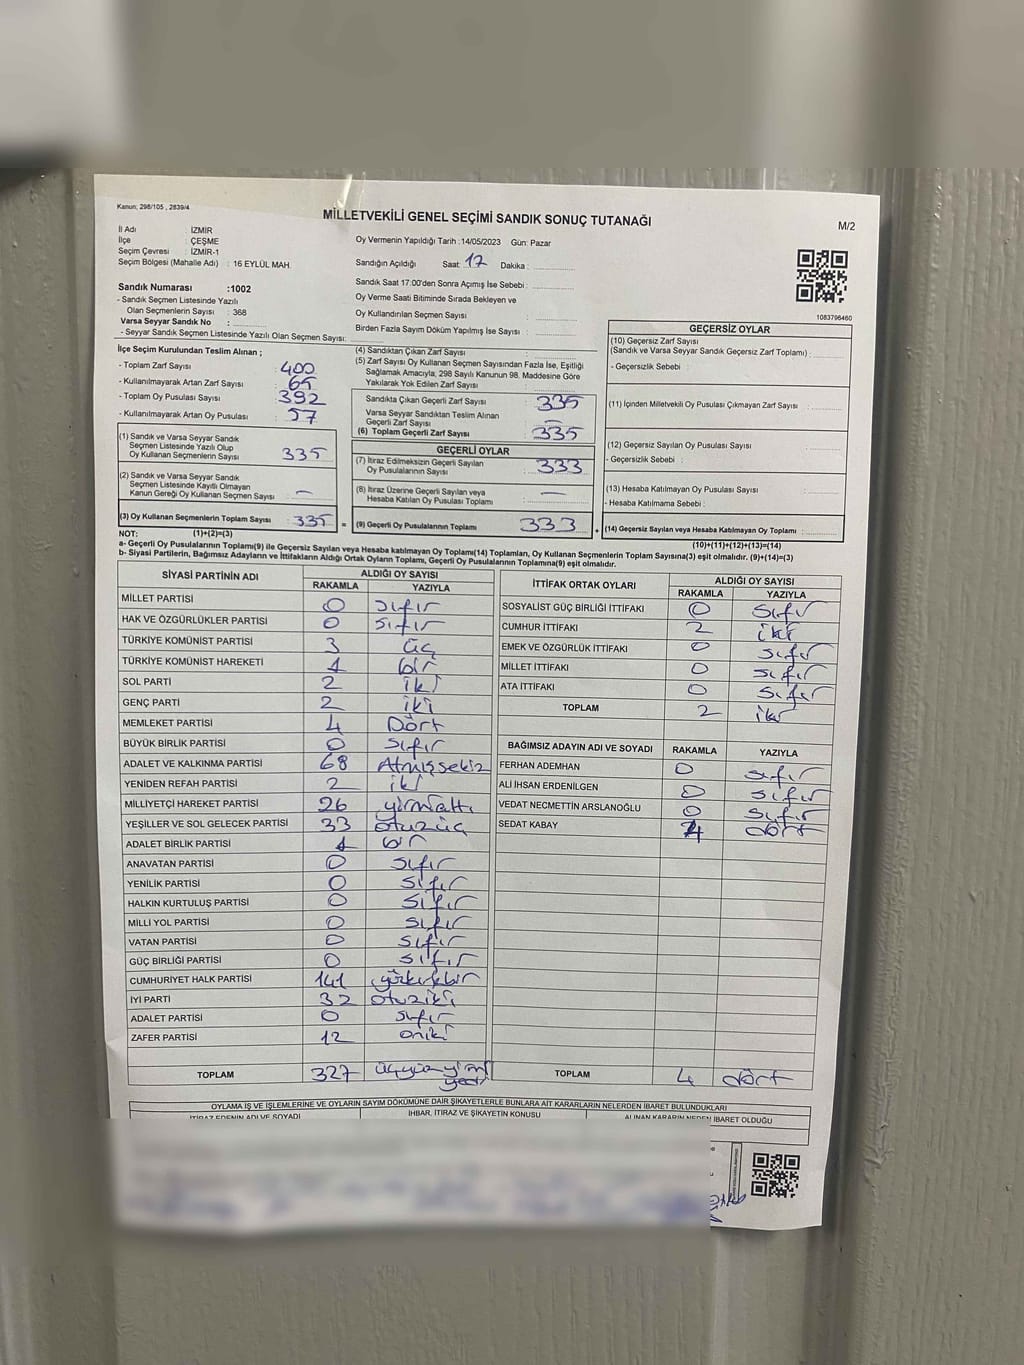 Kanun; 298/105 , 2839/4
MİLLETVEKİLİ GENEL SEÇİMİ SANDIK SONUÇ TUTANAĞI
M/2
İl Adı : İZMİR
İlçe : ÇEŞME
Seçim Çevresi : İZMİR-1
Seçim Bölgesi (Mahalle Adı) : 16 EYLÜL MAH.
Sandık Numarası :1002
- Sandık Seçmen Listesinde Yazılı
Olan Seçmenlerin Sayısı : 368
Varsa Seyyar Sandık No :
- Seyyar Sandık Seçmen Listesinde Yazılı Olan Seçmen Sayısı:
Oy Vermenin Yapıldığı Tarih :14/05/2023 Gün: Pazar
Sandığın Açıldığı Saat: 17 Dakika :
Sandık Saat 17:00'den Sonra Açımış İse Sebebi :
Oy Verme Saati Bitiminde Sırada Bekleyen ve
Oy Kullandırılan Seçmen Sayısı :
Birden Fazla Sayım Döküm Yapılmış İse Sayısı :
1083796460
İlçe Seçim Kurulundan Teslim Alınan ;
- Toplam Zarf Sayısı : 400
- Kullanılmayarak Artan Zarf Sayısı : 65
- Toplam Oy Pusulası Sayısı : 392
- Kullanılmayarak Artan Oy Pusulası : 57
(1) Sandık ve Varsa Seyyar Sandık
Seçmen Listesinde Yazılı Olup
Oy Kullanan Seçmenlerin Sayısı : 335
(2) Sandık ve Varsa Seyyar Sandık
Seçmen Listesinde Kayıtlı Olmayan
Kanun Gereği Oy Kullanan Seçmen Sayısı : —
(3) Oy Kullanan Seçmenlerin Toplam Sayısı : 335 =
(4) Sandıktan Çıkan Zarf Sayısı :
(5) Zarf Sayısı Oy Kullanan Seçmen Sayısından Fazla İse, Eşitliği
Sağlamak Amacıyla; 298 Sayılı Kanunun 98. Maddesine Göre
Yakılarak Yok Edilen Zarf Sayısı :
Sandıkta Çıkan Geçerli Zarf Sayısı : 335
Varsa Seyyar Sandıktan Teslim Alınan
Geçerli Zarf Sayısı : —
(6) Toplam Geçerli Zarf Sayısı : 335
GEÇERLİ OYLAR
(7) İtiraz Edilmeksizin Geçerli Sayılan
Oy Pusulalarının Sayısı : 333
(8) İtiraz Üzerine Geçerli Sayılan veya
Hesaba Katılan Oy Pusulası Toplamı : —
(9) Geçerli Oy Pusulalarının Toplamı : 333 +
GEÇERSİZ OYLAR
(10) Geçersiz Zarf Sayısı
(Sandık ve Varsa Seyyar Sandık Geçersiz Zarf Toplamı) :
- Geçersizlik Sebebi :
(11) İçinden Milletvekili Oy Pusulası Çıkmayan Zarf Sayısı :
(12) Geçersiz Sayılan Oy Pusulası Sayısı :
- Geçersizlik Sebebi :
(13) Hesaba Katılmayan Oy Pusulası Sayısı :
- Hesaba Katılmama Sebebi :
(14) Geçersiz Sayılan veya Hesaba Katılmayan Oy Toplamı :
NOT: (1)+(2)=(3)
(10)+(11)+(12)+(13)=(14)
a- Geçerli Oy Pusulalarının Toplamı(9) ile Geçersiz Sayılan veya Hesaba katılmayan Oy Toplamı(14) Toplamları, Oy Kullanan Seçmenlerin Toplam Sayısına(3) eşit olmalıdır. (9)+(14)=(3)
b- Siyasi Partilerin, Bağımsız Adayların ve İttifakların Aldığı Ortak Oyların Toplamı, Geçerli Oy Pusulalarının Toplamına(9) eşit olmalıdır.
SİYASİ PARTİNİN ADI ALDIĞI OY SAYISI
RAKAMLA YAZIYLA
MİLLET PARTİSİ 0 sıfır
HAK VE ÖZGÜRLÜKLER PARTİSİ 0 sıfır
TÜRKİYE KOMÜNİST PARTİSİ 3 üç
TÜRKİYE KOMÜNİST HAREKETİ 1 bir
SOL PARTİ 2 iki
GENÇ PARTİ 2 iki
MEMLEKET PARTİSİ 4 Dört
BÜYÜK BİRLİK PARTİSİ 0 sıfır
ADALET VE KALKINMA PARTİSİ 68 Atmışsekiz
YENİDEN REFAH PARTİSİ 2 iki
MİLLİYETÇİ HAREKET PARTİSİ 26 yirmialtı
YEŞİLLER VE SOL GELECEK PARTİSİ 33 otuzüç
ADALET BİRLİK PARTİSİ 1 bir
ANAVATAN PARTİSİ 0 sıfır
YENİLİK PARTİSİ 0 sıfır
HALKIN KURTULUŞ PARTİSİ 0 sıfır
MİLLİ YOL PARTİSİ 0 sıfır
VATAN PARTİSİ 0 sıfır
GÜÇ BİRLİĞİ PARTİSİ 0 sıfır
CUMHURİYET HALK PARTİSİ 141 yüzkırkbir
İYİ PARTİ 32 otuziki
ADALET PARTİSİ 0 sıfır
ZAFER PARTİSİ 12 oniki
TOPLAM 327 üçyüzyirmi
yedi
İTTİFAK ORTAK OYLARI ALDIĞI OY SAYISI
RAKAMLA YAZIYLA
SOSYALİST GÜÇ BİRLİĞİ İTTİFAKI 0 sıfır
CUMHUR İTTİFAKI 2 iki
EMEK VE ÖZGÜRLÜK İTTİFAKI 0 sıfır
MİLLET İTTİFAKI 0 sıfır
ATA İTTİFAKI 0 sıfır
TOPLAM 2 iki
BAĞIMSIZ ADAYIN ADI VE SOYADI RAKAMLA YAZIYLA
FERHAN ADEMHAN 0 sıfır
ALİ İHSAN ERDENİLGEN 0 sıfır
VEDAT NECMETTİN ARSLANOĞLU 0 sıfır
SEDAT KABAY 4 dört
TOPLAM 4 dört
OYLAMA İŞ VE İŞLEMLERİNE VE OYLARIN SAYIM DÖKÜMÜNE DAİR ŞİKAYETLERLE BUNLARA AİT KARARLARIN NELERDEN İBARET BULUNDUKLARI
İTİRAZ EDENİN ADI VE SOYADI İHBAR, İTİRAZ VE ŞİKAYETİN KONUSU ALINAN KARARIN NEDEN İBARET OLDUĞU